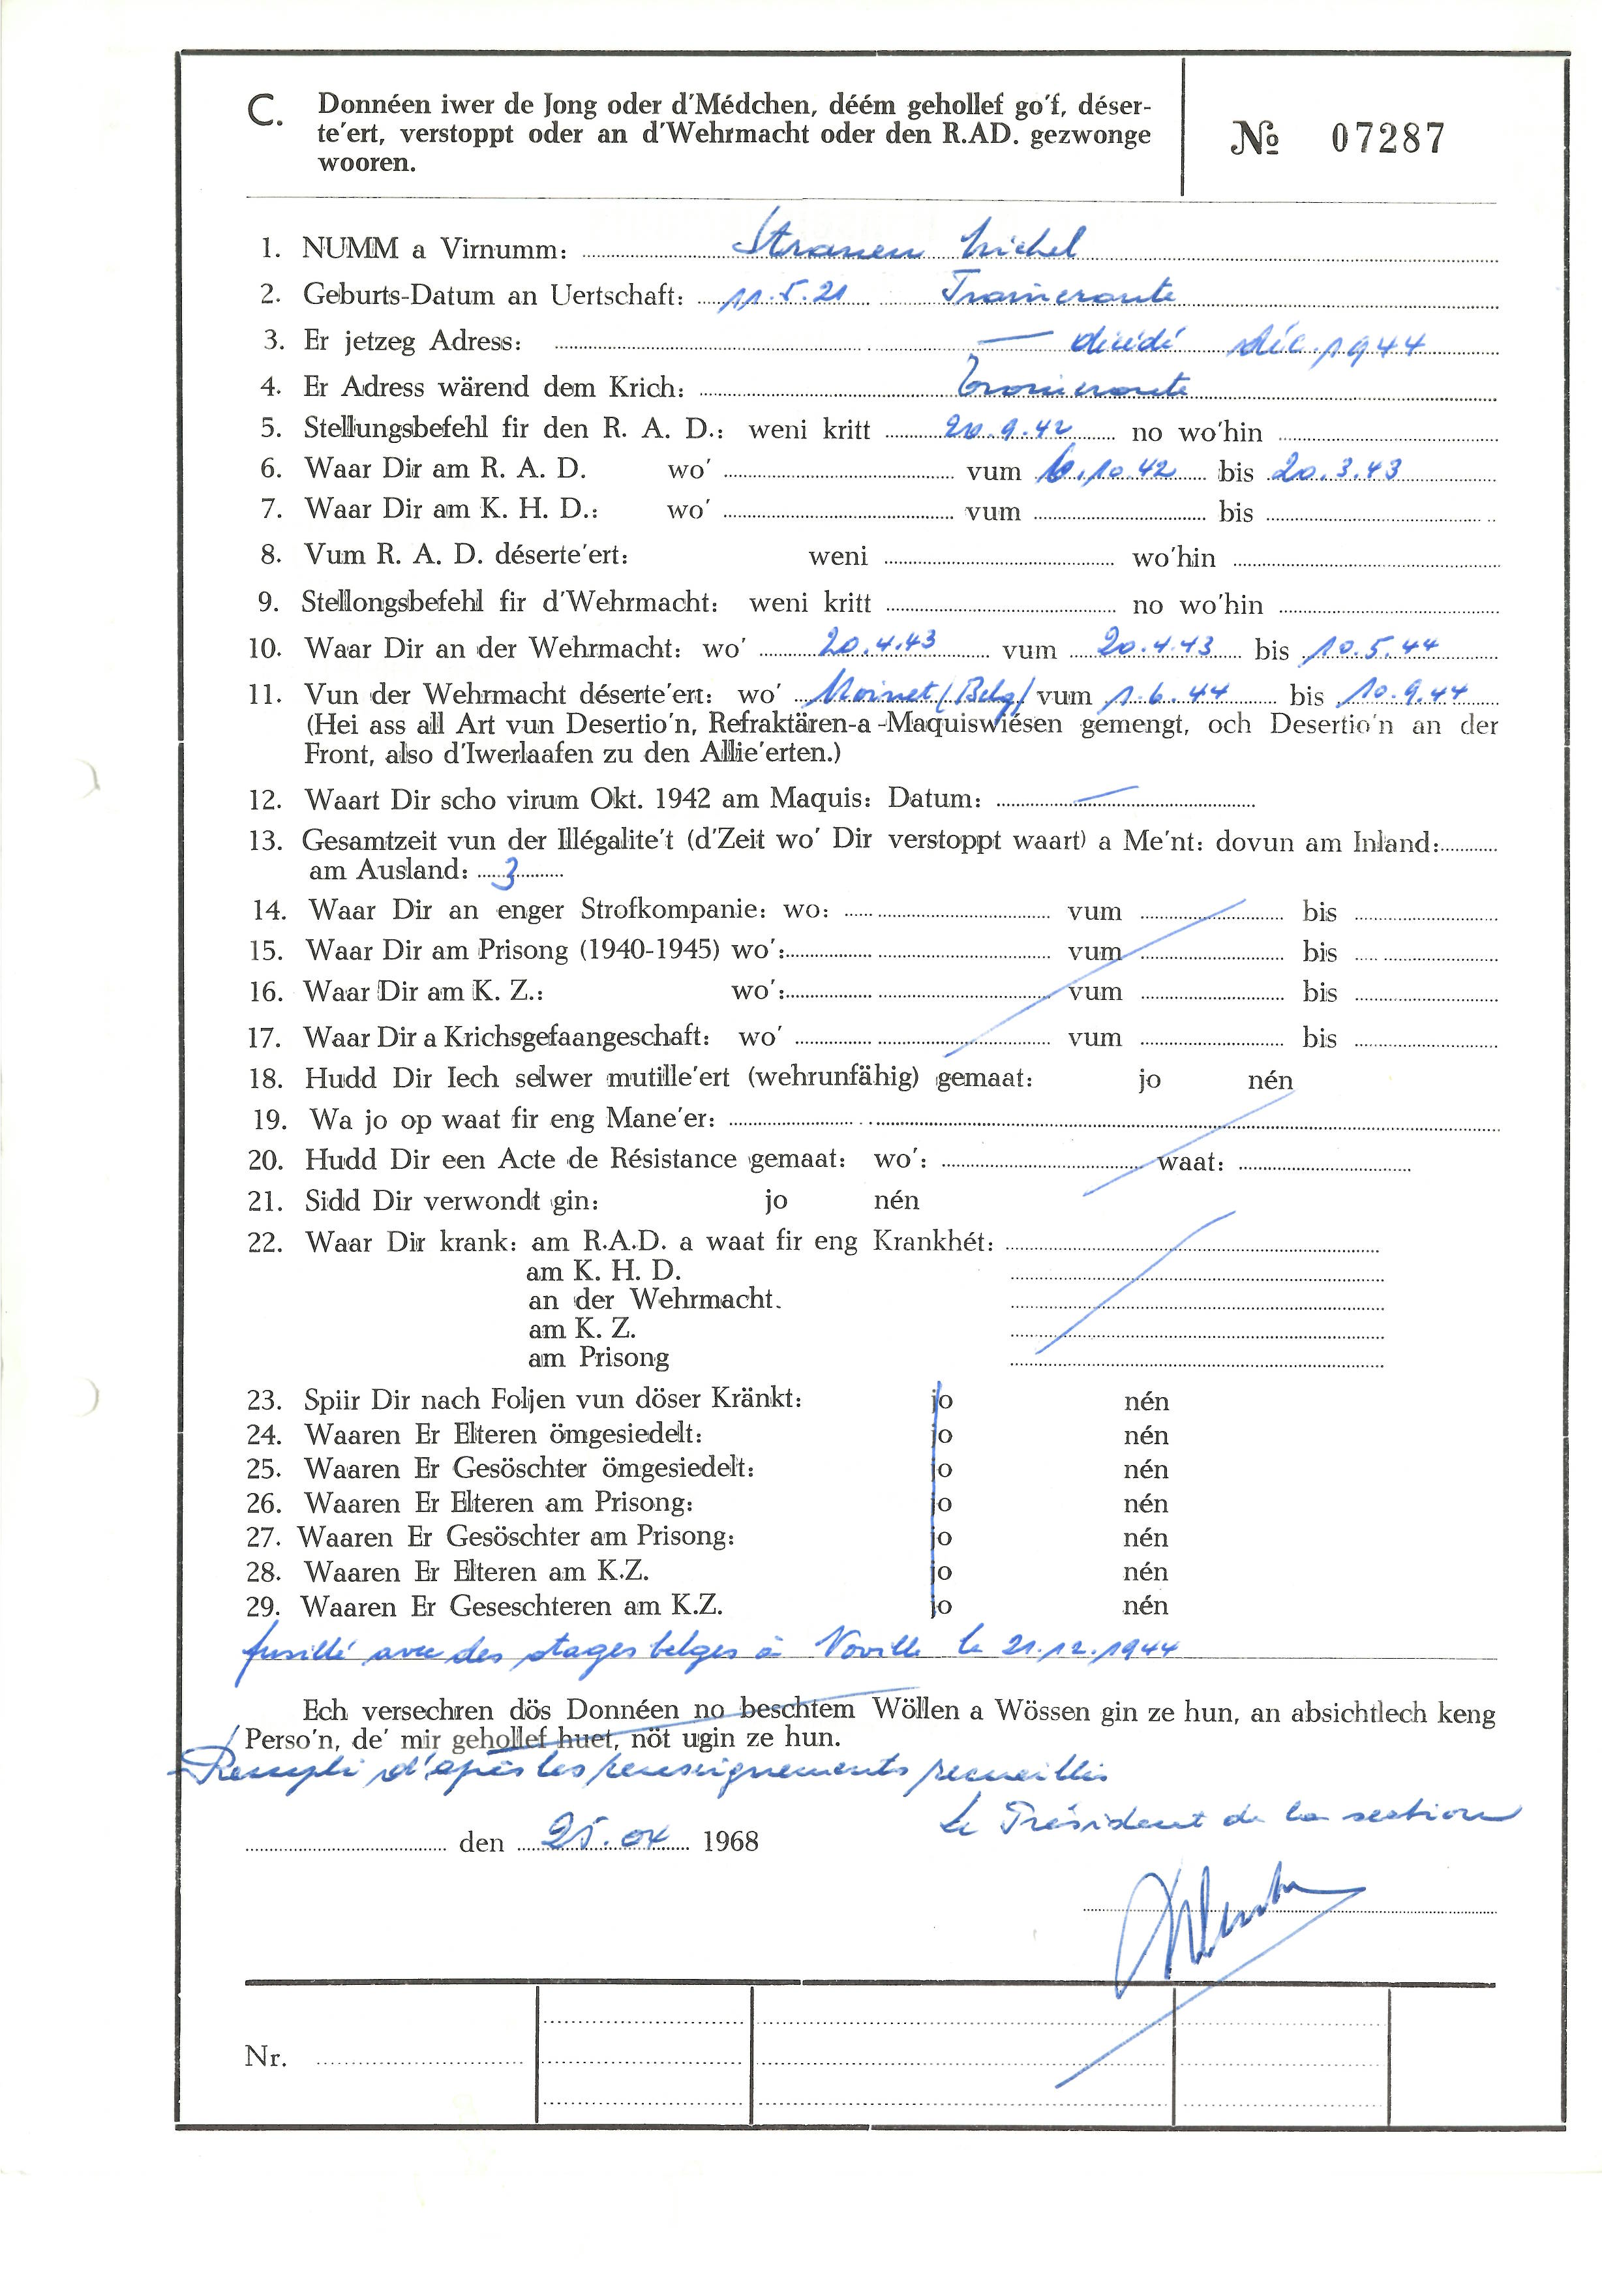 C. Donnéen iwer de Jong oder d'Médchen, déém gehollef go'f, déser-
te'ert, verstoppt oder an d'Wehrmacht oder den R.AD. gezwonge
wooren.
№ 07287
1. NUMM a Virnumm: Stranen Michel
2. Geburts-Datum an Uertschaft: 11.5.21
3. Er jetzeg Adress: — décédé déc. 1944
4. Er Adress wärend dem Krich:
5. Stellungsbefehl fir den R. A. D.: weni kritt 20.9.42 no wo'hin
6. Waar Dir am R. A. D. wo' vum 6.10.42 bis 20.3.43
7. Waar Dir am K. H. D.: wo' vum bis
8. Vum R. A. D. déserte'ert: weni wo'hin
9. Stellongsbefehl fir d'Wehrmacht: weni kritt no wo'hin
10. Waar Dir an der Wehrmacht: wo' 20.4.43 vum 20.4.43 bis 10.5.44
11. Vun der Wehrmacht déserte'ert: wo' Moinet (Belg) vum 1.6.44 bis 10.9.44
(Hei ass all Art vun Desertio'n, Refraktären-a -Maquiswiésen gemengt, och Desertio'n an der
Front, also d'Iwerlaafen zu den Allie'erten.)
12. Waart Dir scho virum Okt. 1942 am Maquis: Datum: —
13. Gesamtzeit vun der Illégalite't (d'Zeit wo' Dir verstoppt waart) a Me'nt: dovun am Inland:
am Ausland: 3
14. Waar Dir an enger Strofkompanie: wo: vum bis
15. Waar Dir am Prisong (1940-1945) wo': vum bis
16. Waar Dir am K. Z.: wo': vum bis
17. Waar Dir a Krichsgefaangeschaft: wo' vum bis
18. Hudd Dir Iech selwer mutille'ert (wehrunfähig) gemaat: jo nén
19. Wa jo op waat fir eng Mane'er:
20. Hudd Dir een Acte de Résistance gemaat: wo': waat:
21. Sidd Dir verwondt gin: jo nén
22. Waar Dir krank: am R.A.D. a waat fir eng Krankhét:
am K. H. D.
an der Wehrmacht.
am K. Z.
am Prisong
23. Spiir Dir nach Foljen vun döser Kränkt: jo nén
24. Waaren Er Elteren ömgesiedelt: jo nén
25. Waaren Er Gesöschter ömgesiedelt: jo nén
26. Waaren Er Elteren am Prisong: jo nén
27. Waaren Er Gesöschter am Prisong: jo nén
28. Waaren Er Elteren am K.Z. jo nén
29. Waaren Er Geseschteren am K.Z. jo nén
fusillé avec des otages belges à Noville le 21.12.1944
Ech versechren dös Donnéen no beschtem Wöllen a Wössen gin ze hun, an absichtlech keng
Perso'n, de' mir gehollef huet, nöt ugin ze hun.
Rempli d'après les renseignements recueillis
Le Président de la section
den 25.04 1968
Nr.